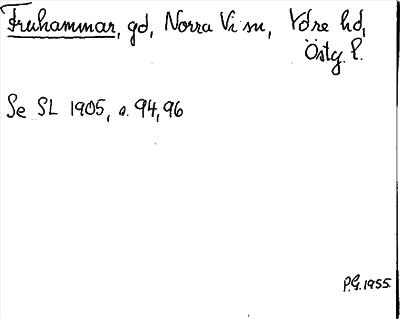 Fruhammar, gd, Norra Vi sn, Ydre hd,
Östg. l.
Se SL 1905, s. 94, 96
P.G. 1955.